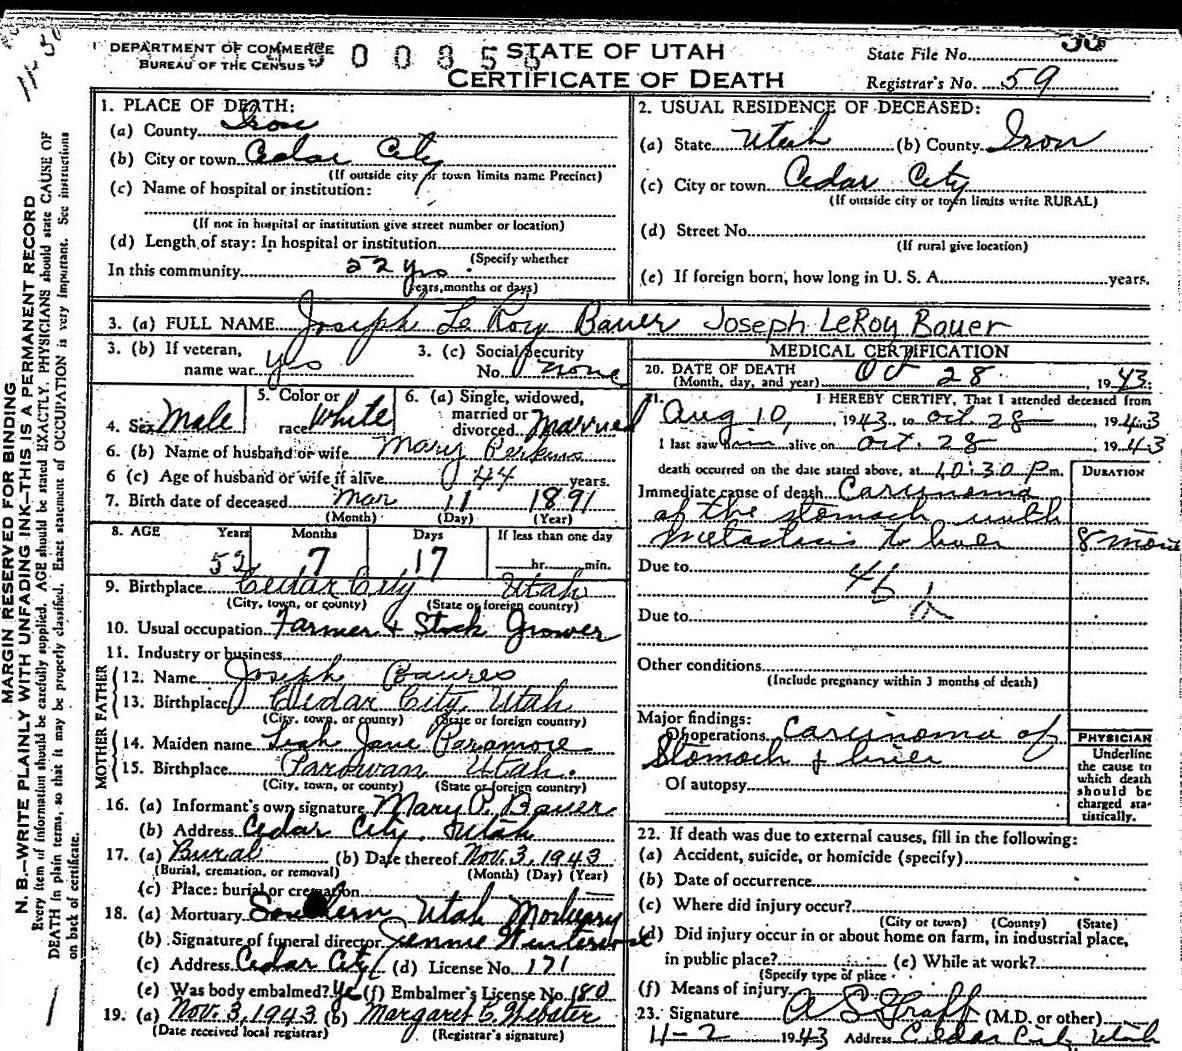 DEPARTMENT OF COMMERCE
BUREAU OF THE CENSUS
STATE OF UTAH
CERTIFICATE OF DEATH
State File No.
Registrar's No. 59
MARGIN RESERVED FOR BINDING
N. B.—WRITE PLAINLY WITH UNFADING INK—THIS IS A PERMANENT RECORD
Every item of information should be carefully supplied. AGE should be stated EXACTLY. PHYSICIANS should state CAUSE OF
DEATH in plain terms, so that it may be properly classified. Exact statement of OCCUPATION is very important. See instructions
on back of certificate.
1. PLACE OF DEATH:
(a) County Iron
(b) City or town Cedar City
(If outside city or town limits name Precinct)
(c) Name of hospital or institution:
(If not in hospital or institution give street number or location)
(d) Length of stay: In hospital or institution
(Specify whether
In this community 52 yrs
years, months or days)
2. USUAL RESIDENCE OF DECEASED:
(a) State Utah (b) County Iron
(c) City or town Cedar City
(If outside city or town limits write RURAL)
(d) Street No.
(If rural give location)
(e) If foreign born, how long in U. S. A. years.
3. (a) FULL NAME Joseph Le Roy Bauer Joseph LeRoy Bauer
3. (b) If veteran,
name war yes
3. (c) Social Security
No. none
4. Sex Male
5. Color or
race White
6. (a) Single, widowed,
married or
divorced Married
6. (b) Name of husband or wife Mary Perkins
6 (c) Age of husband or wife if alive 44 years.
7. Birth date of deceased Mar 11 1891
(Month) (Day) (Year)
8. AGE Years Months Days If less than one day
52 7 17 hr. min.
9. Birthplace Cedar City Utah
(City, town, or county) (State or foreign country)
10. Usual occupation Farmer & Stock Grower
11. Industry or business
FATHER
12. Name Joseph Baures
13. Birthplace Cedar City, Utah
(City, town, or county) (State or foreign country)
MOTHER
14. Maiden name Leah Jane Paramore
15. Birthplace Parowan Utah.
(City, town, or county) (State or foreign country)
16. (a) Informant's own signature Mary P. Bauer
(b) Address Cedar City, Utah
17. (a) Burial (b) Date thereof Nov. 3, 1943
(Burial, cremation, or removal) (Month) (Day) (Year)
(c) Place: burial or cremation
18. (a) Mortuary Southern Utah Mortuary
(b) Signature of funeral director Jennie Winterrose
(c) Address Cedar City (d) License No. 171
(e) Was body embalmed? Yes (f) Embalmer's License No. 180
19. (a) Nov. 3, 1943 (b) Margaret C. Webster
(Date received local registrar) (Registrar's signature)
MEDICAL CERTIFICATION
20. DATE OF DEATH
(Month, day, and year) Oct 28 1943.
21. I HEREBY CERTIFY, That I attended deceased from
Aug 10, 1943, to Oct. 28 1943
I last saw him alive on Oct. 28 1943
death occurred on the date stated above, at 10:30 P.m.
DURATION
Immediate cause of death Carcinoma
of the stomach with
metastasis to liver 8 mon
Due to 46
Due to
Other conditions
(Include pregnancy within 3 months of death)
Major findings:
Of operations Carcinoma of
Stomach & liver
Of autopsy
PHYSICIAN
Underline
the cause to
which death
should be
charged sta-
tistically.
22. If death was due to external causes, fill in the following:
(a) Accident, suicide, or homicide (specify)
(b) Date of occurrence
(c) Where did injury occur?
(City or town) (County) (State)
(d) Did injury occur in or about home on farm, in industrial place,
in public place? (e) While at work?
(Specify type of place
(f) Means of injury
23. Signature A S Graff (M.D. or other)
11-2 1943 Address Cedar City, Utah